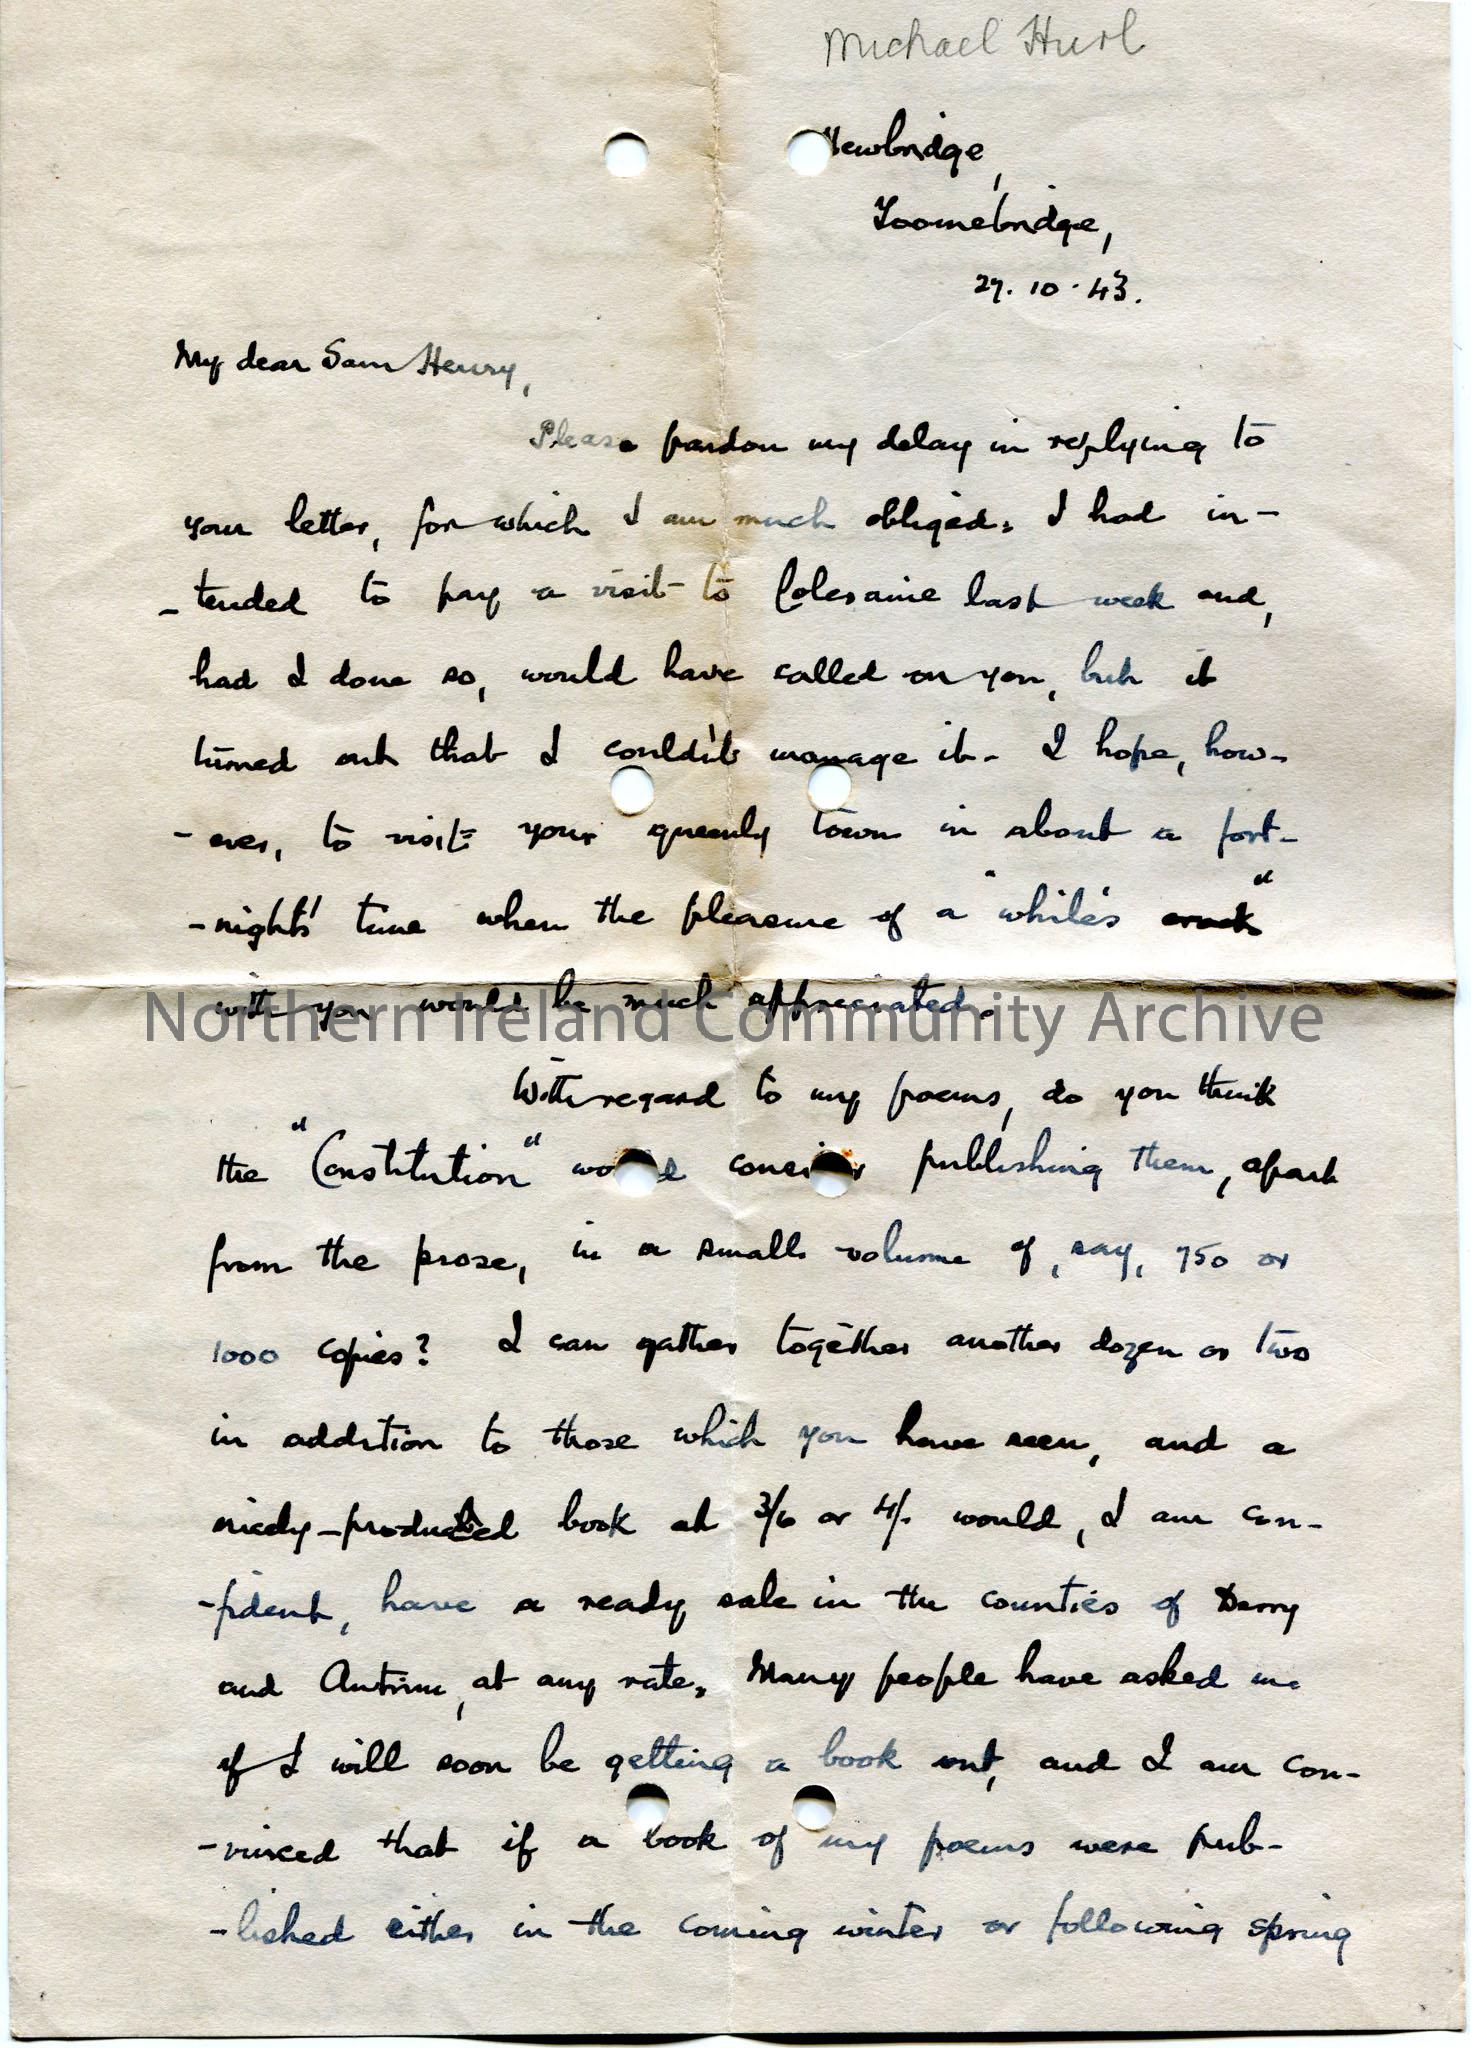 Michael Hurl
Newbridge,
Toomebridge,
27. 10. 43.
My dear Sam Henry,
Please pardon my delay in replying to
your letter, for which I am much obliged. I had in-
-tended to pay a visit to Coleraine last week and,
had I done so, would have called on you, but it
turned out that I couldn't manage it. I hope, how-
-ever, to visit your queenly town in about a fort-
-night's time when the pleasure of a "while's crack"
with you would be much appreciated.
With regard to my poems, do you think
the "Constitution" would consider publishing them, apart
from the prose, in a small volume of, say, 750 or
1000 copies? I can gather together another dozen or two
in addition to those which you have seen, and a
nicely-produced book at 3/6 or 4/- would, I am con-
-fident, have a ready sale in the counties of Derry
and Antrim, at any rate. Many people have asked me
if I will soon be getting a book out, and I am con-
-vinced that if a book of my poems were pub-
-lished either in the coming winter or following spring
Northern Ireland Community Archive